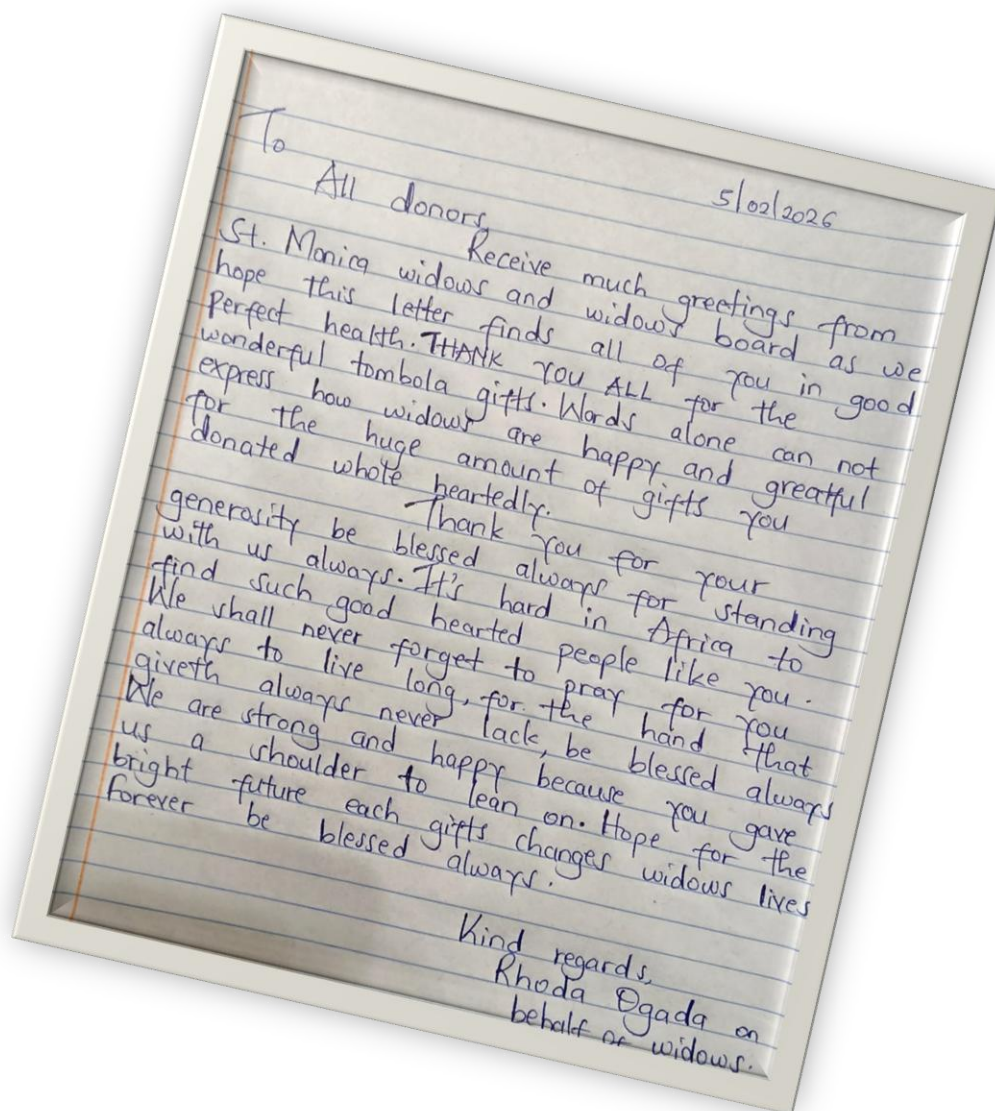 To
5/02/2026
All donors,
Receive much greetings from
St. Monica widows and widows board as we
hope this letter finds all of you in good
perfect health. THANK YOU ALL for the
wonderful tombola gifts. Words alone can not
express how widows are happy and greatful
for the huge amount of gifts you
donated whole heartedly.
Thank you for your
generosity be blessed always for standing
with us always. It's hard in Africa to
find such good hearted people like you.
We shall never forget to pray for you
always to live long, for the hand that
giveth always never lack, be blessed always
We are strong and happy because you gave
us a shoulder to lean on. Hope for the
bright future each gifts changes widows lives
forever be blessed always.
Kind regards,
Rhoda Ogada on
behalf of widows.